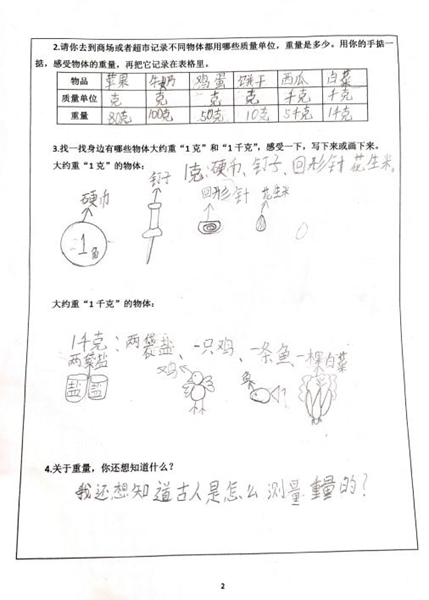 2.请你去到商场或者超市记录不同物体都用哪些质量单位，重量是多少。用你的手掂一
掂，感受物体的重量，再把它记录在表格里。
物品 苹果 牛奶 鸡蛋 饼干 西瓜 白菜
质量单位 克 克 克 克 千克 千克
重量 80克 100克 50克 10克 5千克 1千克
3.找一找身边有哪些物体大约重“1克”和“1千克”，感受一下，写下来或画下来。
大约重“1克”的物体：
1克：硬币、钉子、回形针 花生米。
硬币 钉子 回形针 花生米
1角
大约重“1千克”的物体：
1千克：两袋盐、一只鸡、一条鱼 一棵白菜
两袋盐 鸡 鱼
盐 盐
4.关于重量，你还想知道什么？
我还想知道古人是怎么测量重量的？
2